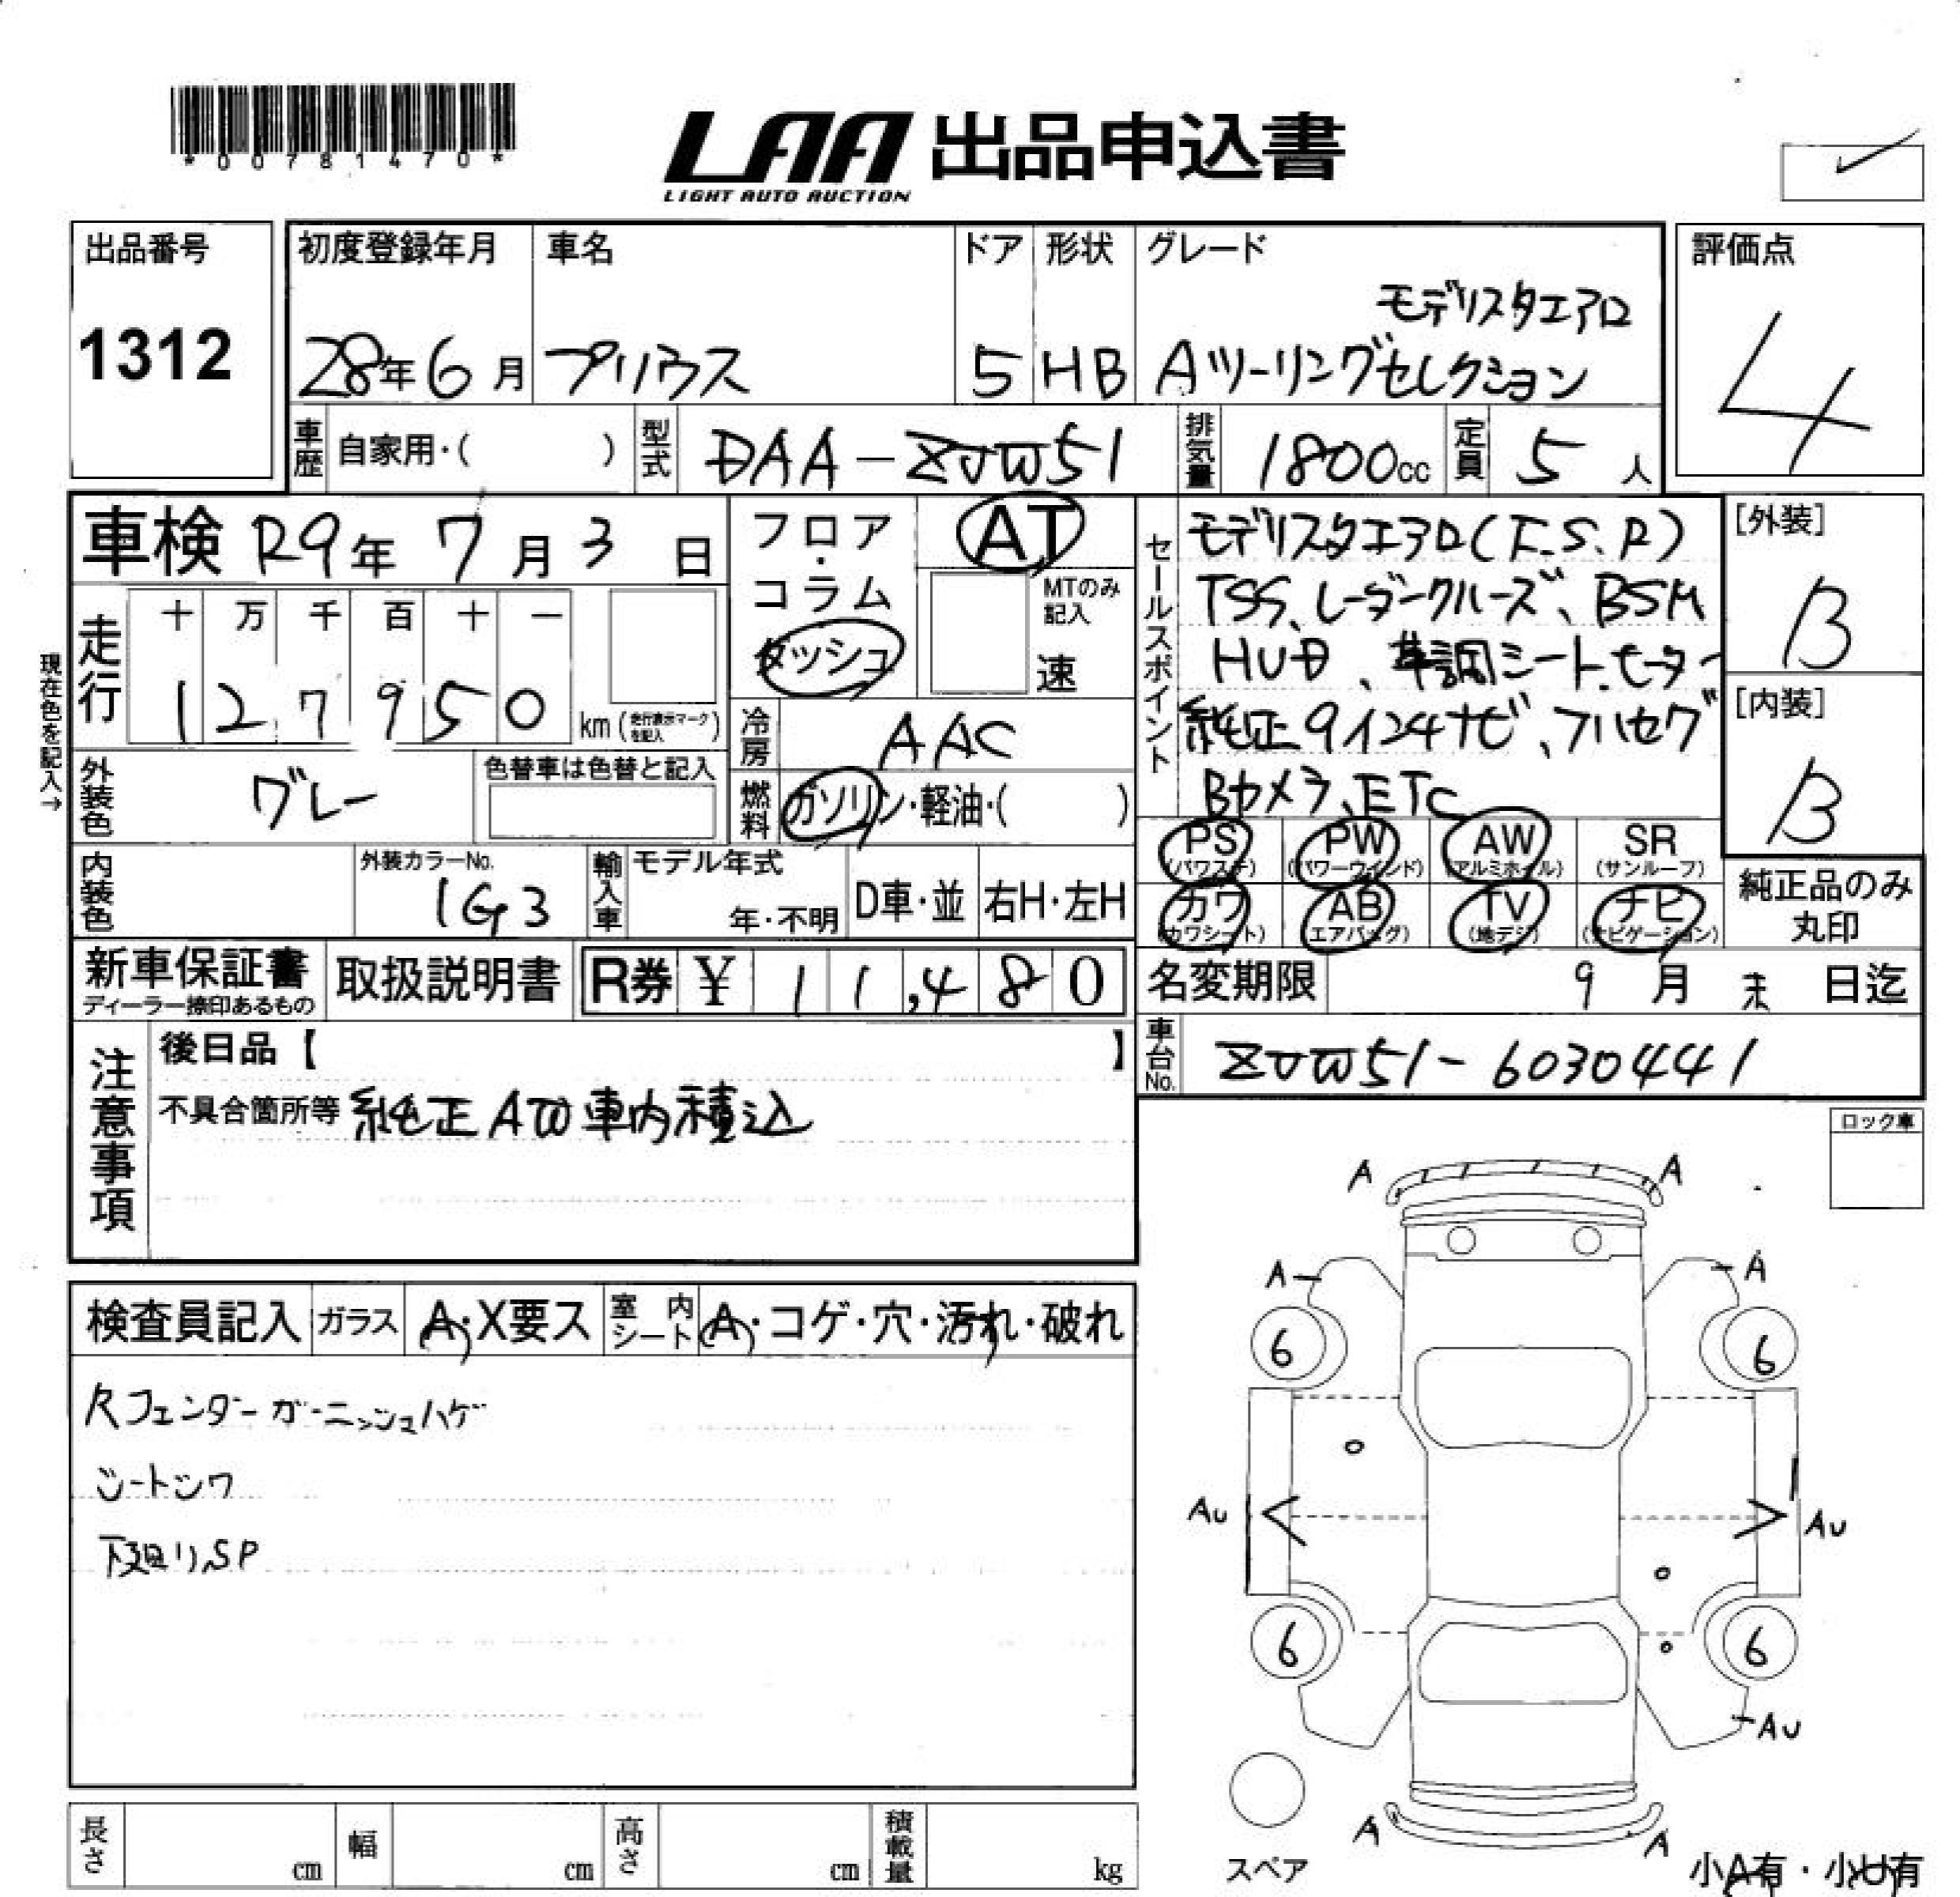 *00781470*
LAA 出品申込書
LIGHT AUTO AUCTION
出品番号
1312
初度登録年月
28年6月
車名
プリウス
ドア
5
形状
HB
グレード
モデリスタエアロ
Aツーリングセレクション
評価点
4
車歴 自家用・( )
型式 DAA-ZVW51
排気量 1800cc
定員 5人
車検 R9年7月3日
現在色を記入→
走行 十 万 千 百 十 一
1 2 7 9 5 0 km (走行表示マークを記入)
フロア・コラム
ダッシュ
AT
MTのみ記入
速
冷房 AAC
外装色 グレー
色替車は色替と記入
燃料 ガソリン・軽油・( )
内装色
外装カラーNo.
1G3
輸入車 モデル年式
年・不明
D車・並
右H・左H
セールスポイント
モデリスタエアロ(F.S.R)
TSS、レーダークルーズ、BSM
HUD、革調シート、ヒーター
純正9インチナビ、フルセグ
Bカメラ、ETC
[外装]
B
[内装]
B
PS (パワステ) PW (パワーウインド) AW (アルミホイル) SR (サンルーフ)
カワ (カワシート) AB (エアバッグ) TV (地デジ) ナビ (ナビゲーション)
純正品のみ丸印
新車保証書
ディーラー捺印あるもの
取扱説明書
R券 ¥ 11,480
名変期限 9月末日迄
車台No. ZVW51-6030441
注意事項
後日品【 】
不具合箇所等 純正AW車内積込
ロック車
検査員記入 ガラス A・X要ス 室内シート A・コゲ・穴・汚れ・破れ
フェンダーガーニッシュハゲ
シートシワ
下廻りSP
A A
A A
6 6
AU AU
6 6
AU
A A
スペア
小A有・小U有
長さ cm 幅 cm 高さ cm 積載量 kg